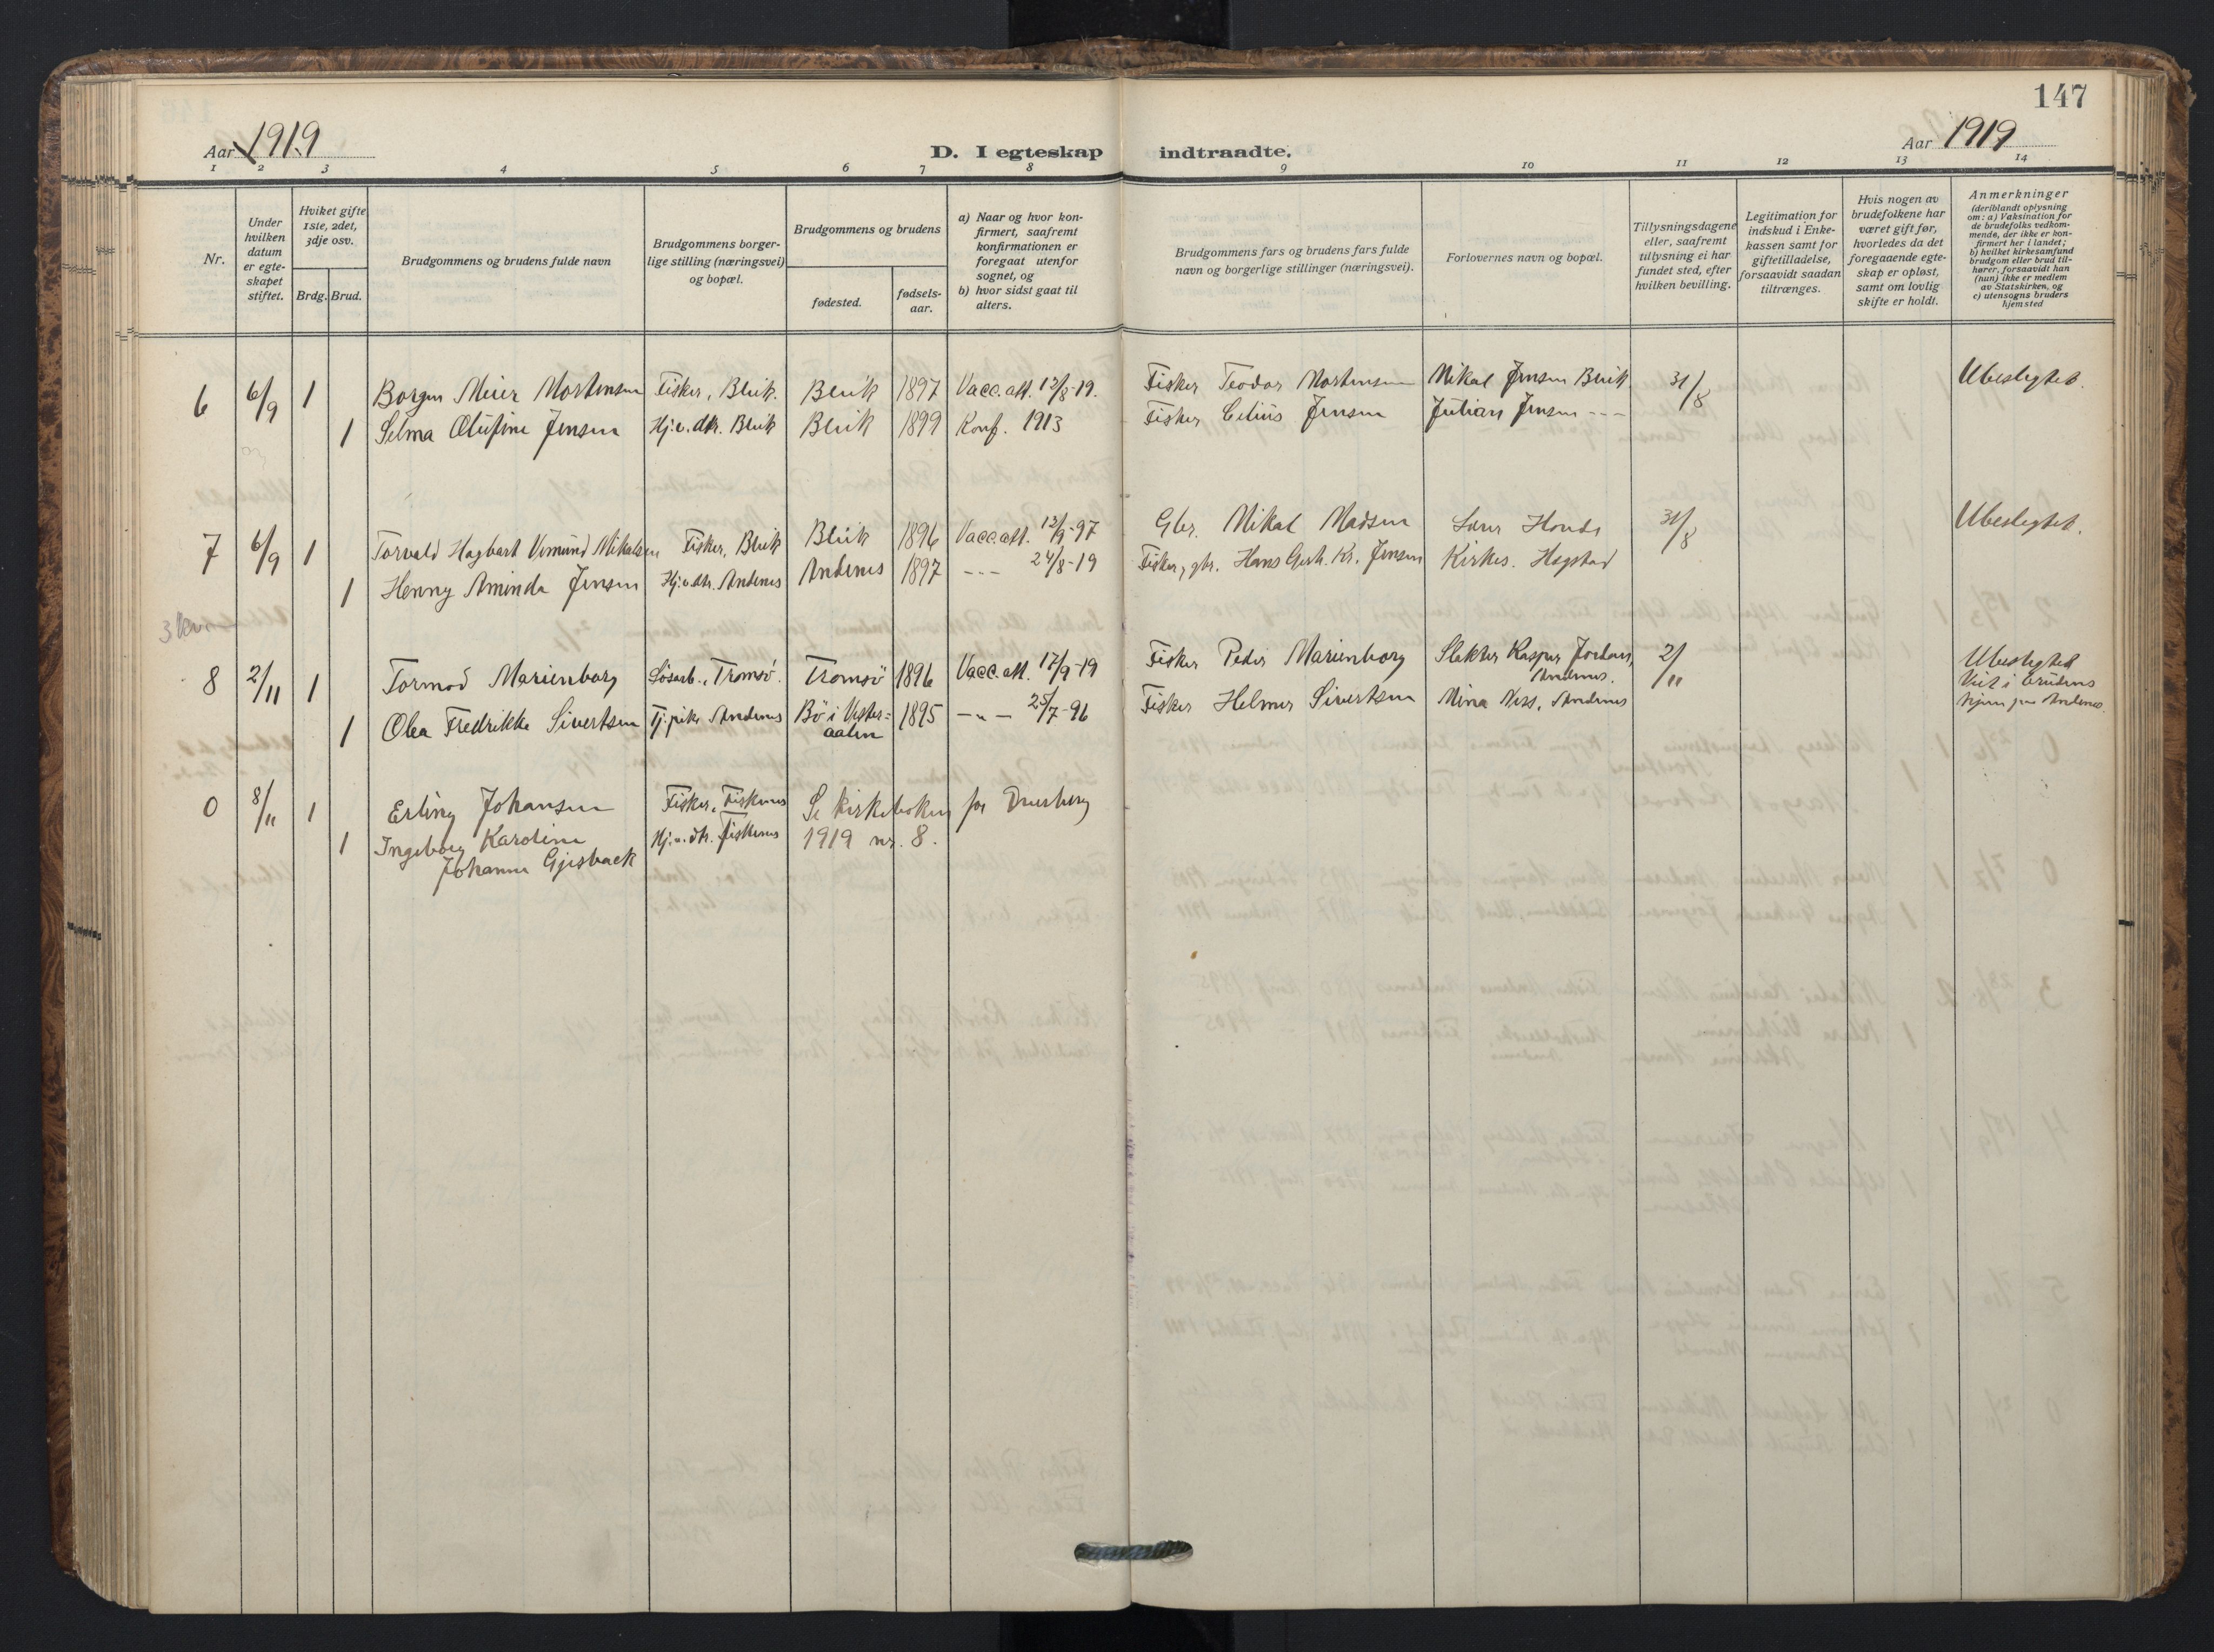 147
Aar 1919
D. I egteskap indtraadte.
Aar 1919
1 2 3 4 5 6 7 8 9 10 11 12 13 14
Nr.
Under hvilken datum er egteskapet stiftet.
Hviket gifte 1ste, 2det, 3dje osv.
Brdg. Brud.
Brudgommens og brudens fulde navn
Brudgommens borgerlige stilling (næringsvei) og bopæl.
Brudgommens og brudens
fødested.
fødselsaar.
a) Naar og hvor konfirmert, saafremt konfirmationen er foregaat utenfor sognet, og
b) hvor sidst gaat til alters.
Brudgommens fars og brudens fars fulde navn og borgerlige stillinger (næringsvei).
Forlovernes navn og bopæl.
Tillysningsdagene eller, saafremt tillysning ei har fundet sted, efter hvilken bevilling.
Legitimation for indskud i Enkekassen samt for giftetilladelse, forsaavidt saadan tiltrænges.
Hvis nogen av brudefolkene har været gift før, hvorledes da det foregaaende egteskap er opløst, samt om lovlig skifte er holdt.
Anmerkninger
(deriblandt oplysning om: a) Vaksination for de brudefolks vedkommende, der ikke er konfirmert her i landet; b) hvilket kirkesamfund brudgom eller brud tilhører, forsaavidt han (hun) ikke er medlem av Statskirken, og c) utensogns bruders hjemsted
6 6/9 1 Borgen Meier Mortensen Fisker, Bleik. Bleik 1897 Vacc. att. 12/8-19. Fisker Teodor Mortensen Mikal Jensen Bleik 31/8 Ubeslegtet.
1 Selma Olufine Jensen Hj.v. dtr. Bleik Bleik 1899 Konf. 1913 Fisker Celius Jensen Julian Jensen - - -
7 6/9 1 Torvald Hagbart Vemund Mikalsen Fisker, Bleik Bleik 1896 Vacc. att. 12/9-97 Gbr. Mikal Madsen Lærer Honde 31/8 Ubeslegtet.
1 Henny Aminda Jensen Hj.v. dtr. Andenes Andenes 1897 - - - 24/8-19 Fisker, gbr. Hans Gerh. Kr. Jensen Kirkes. Hogstad
8 2/11 1 Tormod Marienborg Løsarb., Tromsö. Tromsö 1896 Vacc. att. 17/9-19 Fisker Peder Marienborg Slakter Kasper Jordan, Andenes. 2/11 Ubeslegtet
Viet i brudens hjem paa Andenes.
1 Olea Fredrikke Sivertsen Tj.pike Andenes Bö i Vesteraalen 1895 - " - 25/7-96 Fisker Helmer Sivertsen Mina Ness, Andenes
0 8/11 1 Erling Johansen Fisker, Fiskenes Se kirkeboken for Dverberg
1 Ingeborg Karoline Johanne Gjesbaek Hj.v. dtr. Fiskenes 1919 nr. 8.